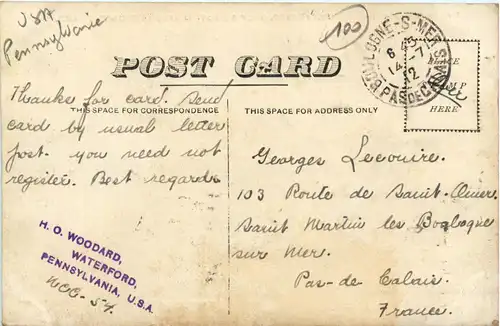 USA
Pennsylvanie
100
BOULOGNE-S-MER
PAS DE CALAIS
6 45
14 - 7
12
POST CARD
PLACE
HERE
THIS SPACE FOR CORRESPONDENCE
THIS SPACE FOR ADDRESS ONLY
Thanks for card. Send
card by usual letter
post. you need not
register. Best regards.
H. O. WOODARD,
WATERFORD,
PENNSYLVANIA, U.S.A.
Georges Lecouire.
103 Route de Saint-Omer
Saint Martin les Boulogne
sur Mer.
Pas-de Calais.
France.